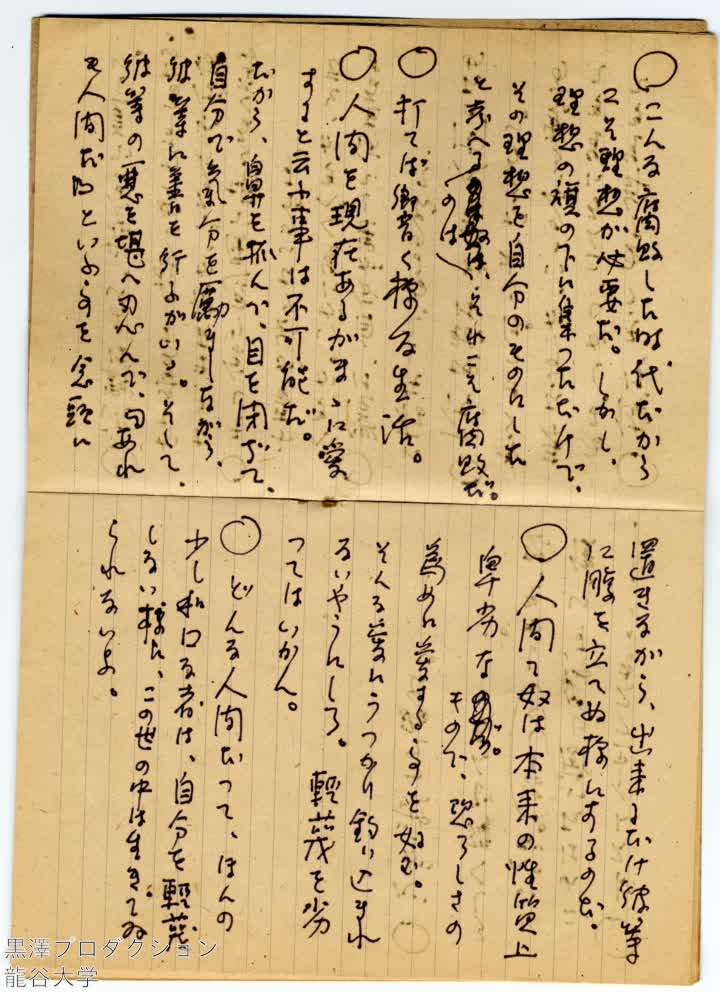 ○こんな腐敗した時代だから
こそ理想が必要だ。しかし、
理想の旗の下に集つただけで、
その理想を自分のものにした
と考へるのは、それこそ腐敗だ。
○打てば響く様な生活。
○人間を現在あるがまゝに愛
すると云ふ事は不可能だ。
だから、鼻を抓んで、目を閉ぢて、
自分で気分を励ましながら、
彼等に善を行ふがいゝ。そして、
彼等の悪を堪へ忍んで、
も人間だといふ事を念頭に
置きながら、出来るだけ彼等
に腹を立てぬ様にするのだ。
○人間て奴は本来の性質上
卑劣な
もので、恐ろしさの
為めに愛する事を好む。
そんな愛にうつかり釣り込まれ
ないやうにしろ。軽蔑を劣
つてはいかん。
○どんな人間だつて、ほんの
少し利口な者は、自分を軽蔑
しない様に、この世の中は生きてゐ
られないよ。
黒澤プロダクション
龍谷大学